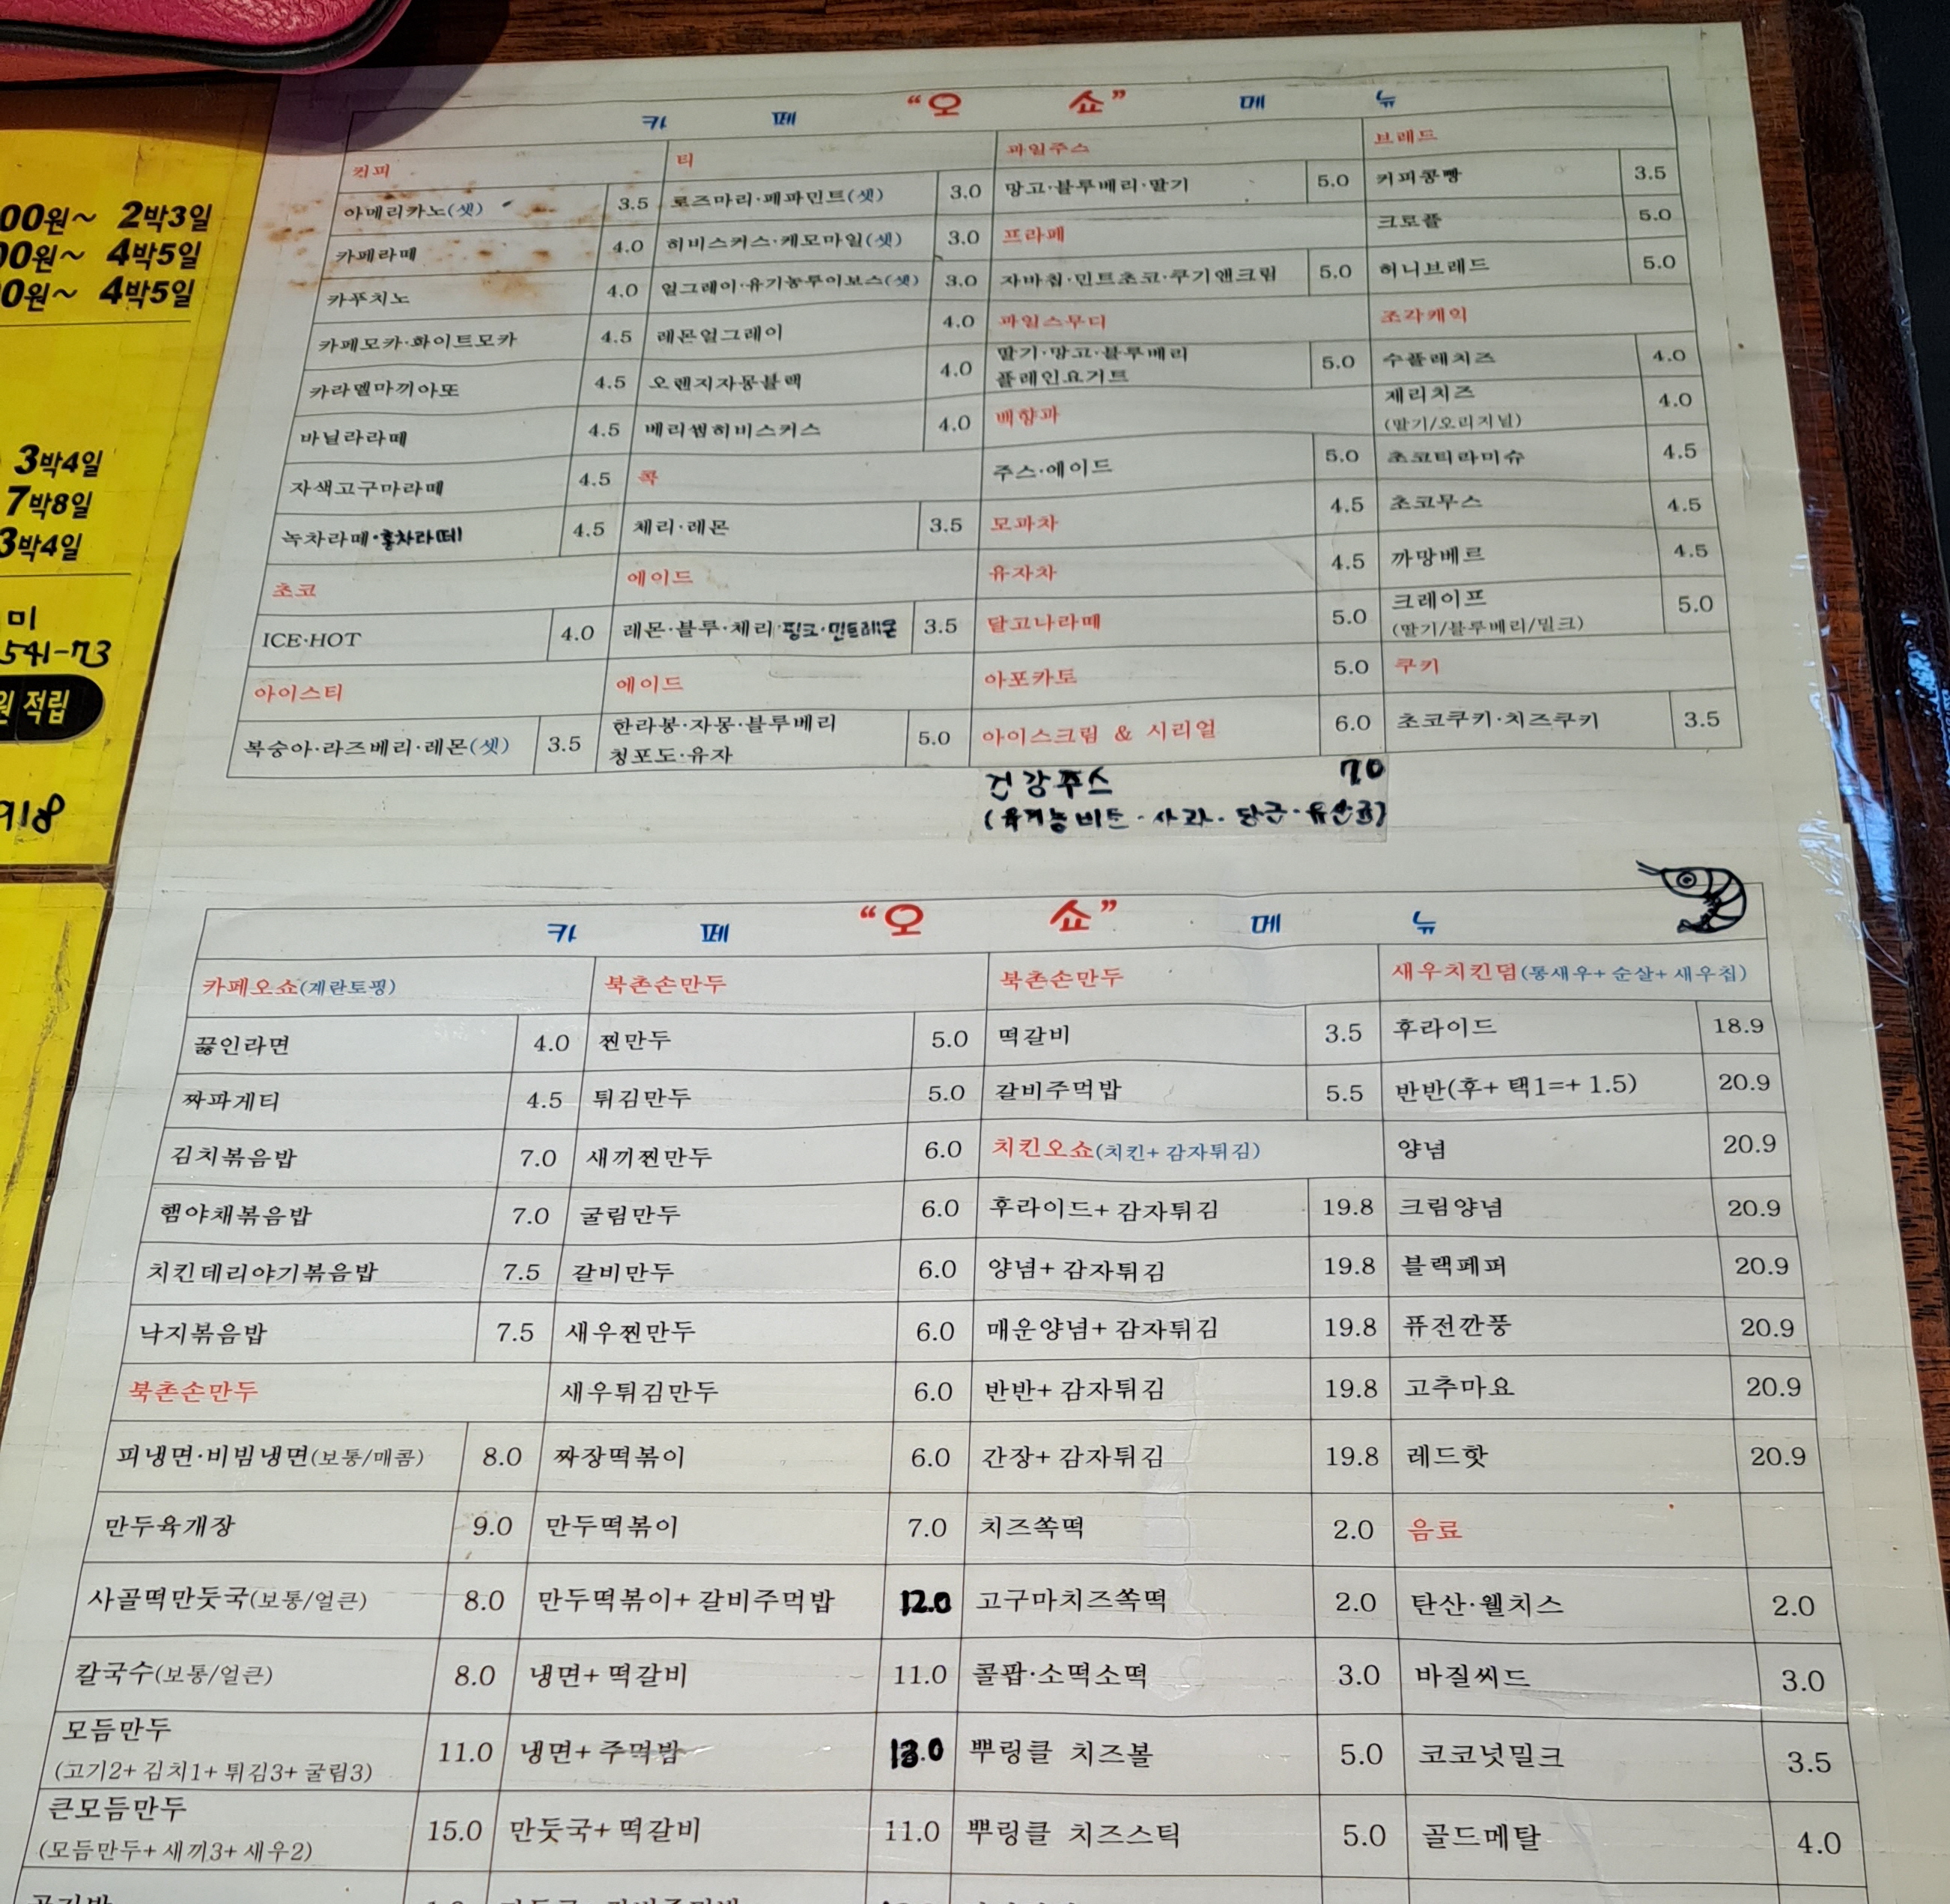 00원~ 2박3일
00원~ 4박5일
0원~ 4박5일
3박4일
7박8일
3박4일
미
541-73
원 적립
918
카 페 “오 쇼” 메 뉴
커피 티 과일주스 브레드
아메리카노(셋) 3.5 로즈마리·페파민트(셋) 3.0 망고·블루베리·딸기 5.0 커피콩빵 3.5
카페라떼 4.0 히비스커스·케모마일(셋) 3.0 프라페 크로플 5.0
카푸치노 4.0 얼그레이·유기농루이보스(셋) 3.0 자바칩·민트초코·쿠기앤크림 5.0 허니브레드 5.0
카페모카·화이트모카 4.5 레몬얼그레이 4.0 과일스무디 조각케익
카라멜마끼아또 4.5 오렌지자몽블랙 4.0 딸기·망고·블루베리 플레인요거트 5.0 수플레치즈 4.0
바닐라라떼 4.5 베리썸히비스커스 4.0 백향과 제리치즈 (딸기/오리지널) 4.0
자색고구마라떼 4.5 콕 주스·에이드 5.0 초코티라미슈 4.5
녹차라떼·홍차라떼 4.5 체리·레몬 3.5 모과차 4.5 초코무스 4.5
초코 에이드 유자차 4.5 까망베르 4.5
ICE·HOT 4.0 레몬·블루·체리·핑크·민트레몬 3.5 달고나라떼 5.0 크레이프 (딸기/블루베리/밀크) 5.0
아이스티 에이드 아포카토 5.0 쿠키
복숭아·라즈베리·레몬(셋) 3.5 한라봉·자몽·블루베리 청포도·유자 5.0 아이스크림 & 시리얼 6.0 초코쿠키·치즈쿠키 3.5
건강주스 70
(유기농비트·사과·당근·유산균)
카 페 “오 쇼” 메 뉴
카페오쇼(계란토핑) 북촌손만두 북촌손만두 새우치킨덤(통새우+ 순살+ 새우칩)
끓인라면 4.0 찐만두 5.0 떡갈비 3.5 후라이드 18.9
짜파게티 4.5 튀김만두 5.0 갈비주먹밥 5.5 반반(후+ 택1=+ 1.5) 20.9
김치볶음밥 7.0 새끼찐만두 6.0 치킨오쇼(치킨+ 감자튀김) 양념 20.9
햄야채볶음밥 7.0 굴림만두 6.0 후라이드+ 감자튀김 19.8 크림양념 20.9
치킨데리야기볶음밥 7.5 갈비만두 6.0 양념+ 감자튀김 19.8 블랙페퍼 20.9
낙지볶음밥 7.5 새우찐만두 6.0 매운양념+ 감자튀김 19.8 퓨전깐풍 20.9
북촌손만두 새우튀김만두 6.0 반반+ 감자튀김 19.8 고추마요 20.9
피냉면·비빔냉면(보통/매콤) 8.0 짜장떡볶이 6.0 간장+ 감자튀김 19.8 레드핫 20.9
만두육개장 9.0 만두떡볶이 7.0 치즈쏙떡 2.0 음료
사골떡만둣국(보통/얼큰) 8.0 만두떡볶이+ 갈비주먹밥 12.0 고구마치즈쏙떡 2.0 탄산·웰치스 2.0
칼국수(보통/얼큰) 8.0 냉면+ 떡갈비 11.0 콜팝·소떡소떡 3.0 바질씨드 3.0
모듬만두 (고기2+ 김치1+ 튀김3+ 굴림3) 11.0 냉면+ 주먹밥 13.0 뿌링클 치즈볼 5.0 코코넛밀크 3.5
큰모듬만두 (모듬만두+ 새끼3+ 새우2) 15.0 만둣국+ 떡갈비 11.0 뿌링클 치즈스틱 5.0 골드메탈 4.0